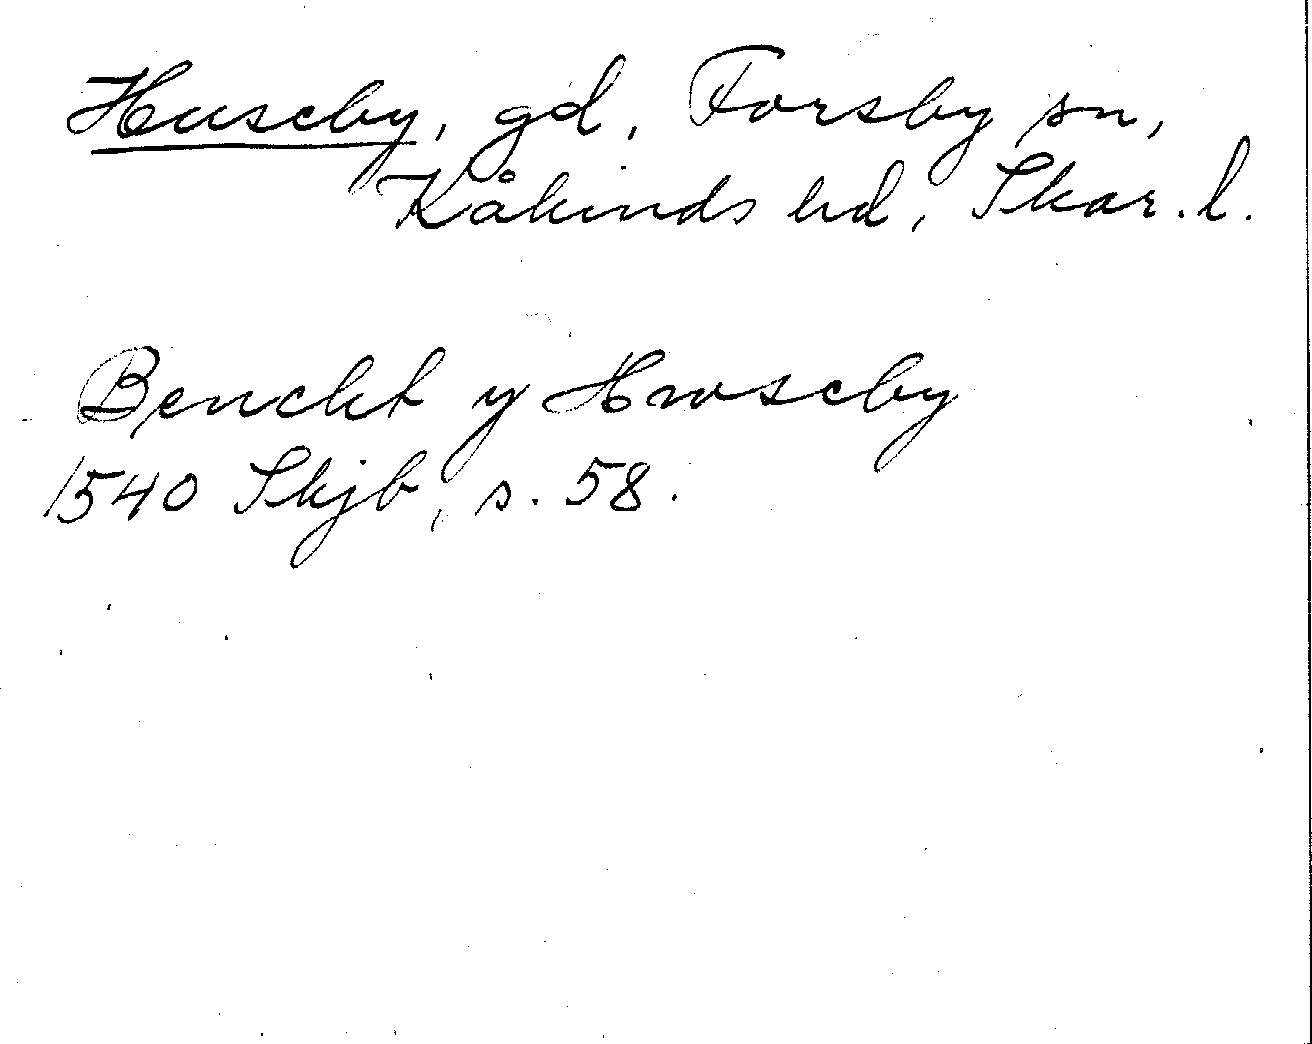 Huseby, gd, Forsby sn,
Kåkinds hd, Skar. l.
Benckt y Hwseby
1540 Skjb, s. 58.